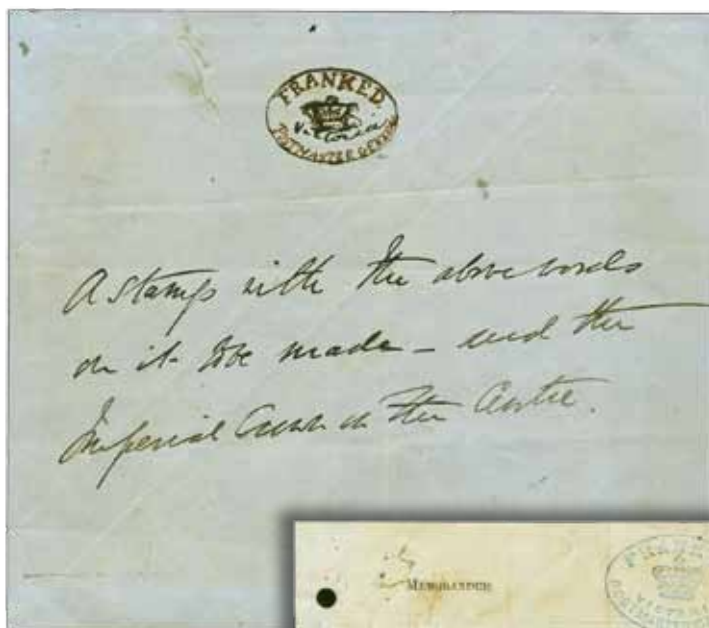 FRANKED
Victoria
POSTMASTER GENERAL
A stamp with the above words
on it to be made - and the
Imperial Crown in the Centre.
MEMORANDUM
FRANKED
VICTORIA
POSTMASTER GENERAL